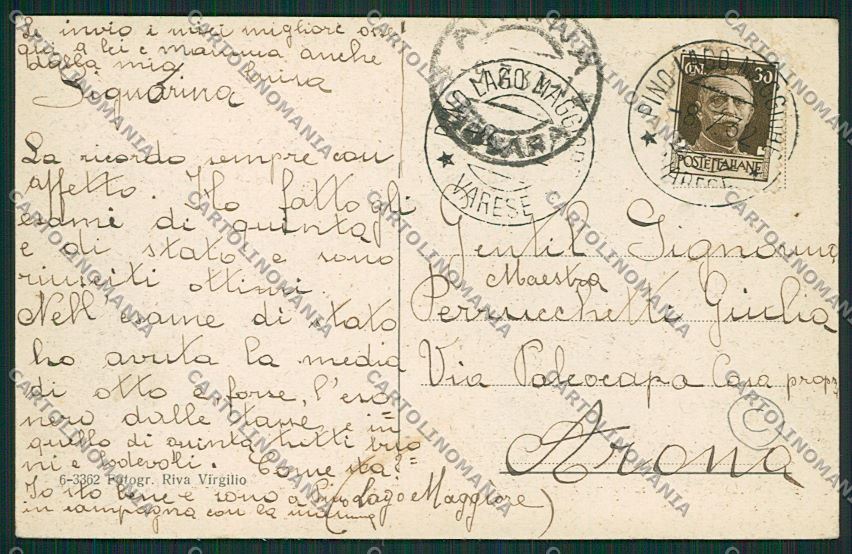 Le invio i miei migliori au=
guri a lei e mamma anche
dalla mia
Signorina
La ricordo sempre con
affetto. Ho fatto gli
esami di quinta
e di stato e sono
riusciti ottimi.
Nell'esame di stato
ho avuta la media
di otto e, forse, l'eso
nero dalle tasse, e in=
quello di quinta tutti buo
ni e lodevoli. Come sta?=
6-3362 Fotogr. Riva Virgilio
Io sto bene e sono a Pino (Lago Maggiore)
in campagna con la mamma
PINO LAGO MAGGIORE
VARESE
ARONA
NOVARA
PINO LAGO MAGGIORE
VARESE
CENT. 30
POSTE ITALIANE
Gentil Signorina
Maestra
Perrucchetti Giulia
Via Paleocapa Casa propr
Arona
C
CARTOLINOMANIA